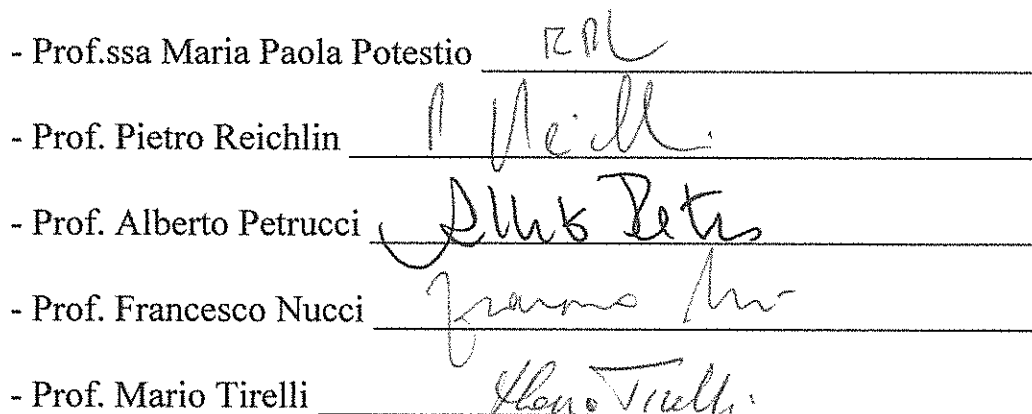 - Prof.ssa Maria Paola Potestio
- Prof. Pietro Reichlin P Reichlin
- Prof. Alberto Petrucci
- Prof. Francesco Nucci
- Prof. Mario Tirelli Mario Tirelli